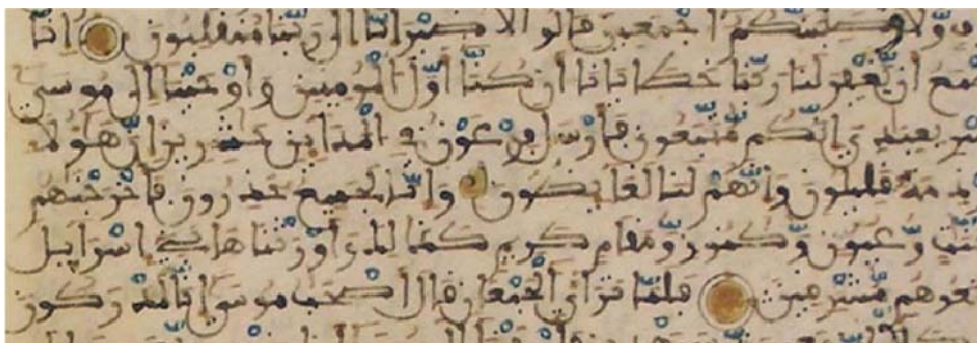 ولأصلبنكم أجمعين قالوا لا ضير إنا إلى ربنا منقلبون إنا
أن يغفر لنا ربنا خطينا أن كنا أول المومنين وأوحينا إلى موسى
بعبادي إنكم متبعون فأرسل فرعون في المداين حشرين إن هؤلا
قليلون وإنهم لنا لغايظون وإنا لجميع حذرون فأخرجنهم
وعيون وكنوز ومقام كريم كذلك وأورثنها بني إسرايل
مشرقين فلما ترا الجمعن قال أصحب موسى إنا لمدركون